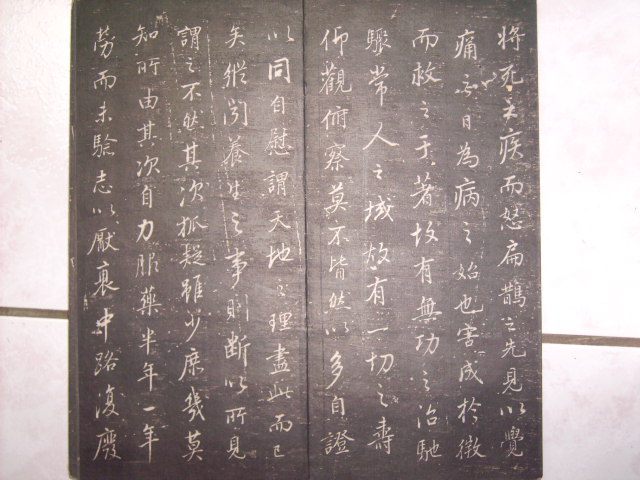 將死之疾而怒扁鵲之先見以覺
痛之日為病之始也害成於微
而救之于著故有無功之治馳
驟常人之域故有一切之壽
仰觀俯察莫不皆然以多自證
以同自慰謂天地之理盡此而已
矣縱聞養生之事則斷以所見
謂之不然其次狐疑雖少庶幾莫
知所由其次自力服藥半年一年
勞而未驗志以厭衰中路復廢